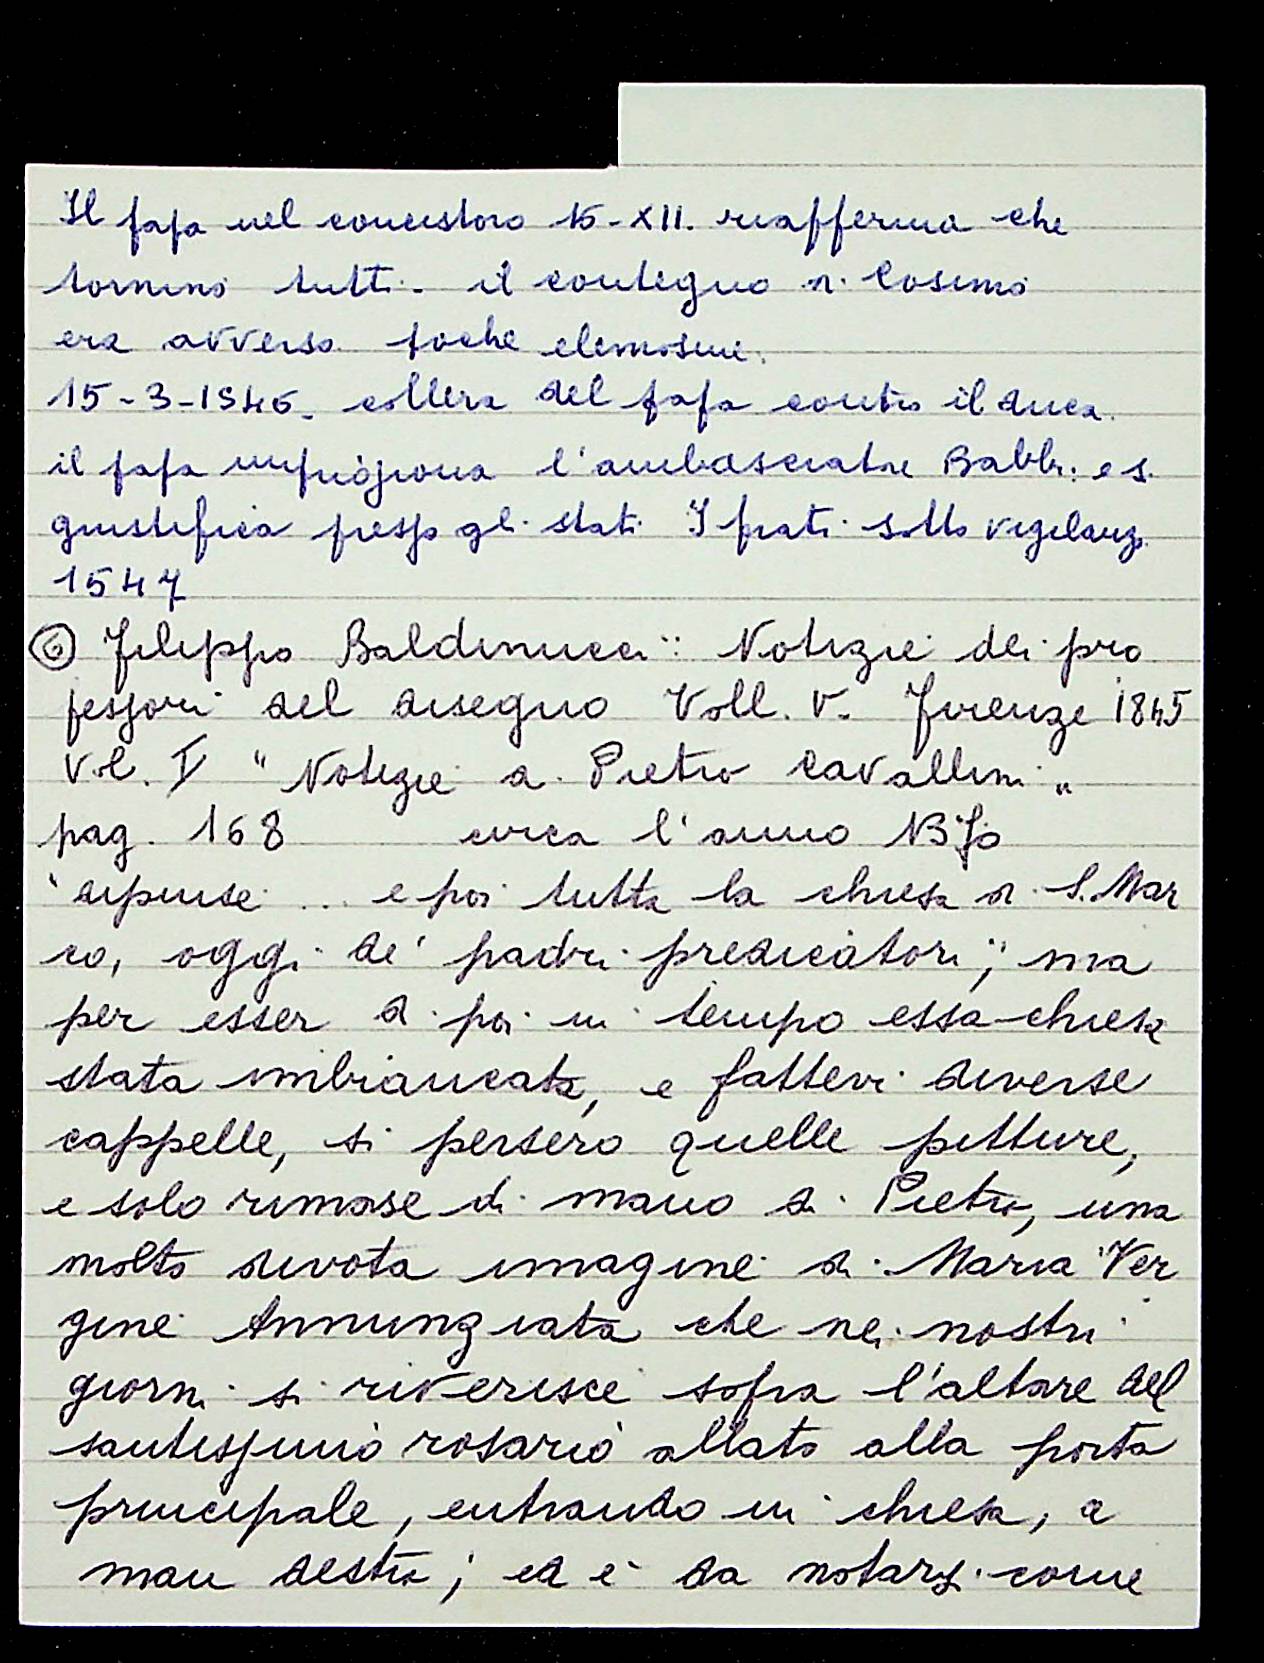 Il papa nel concistoro 15-XII. riafferma che
tornino tutti. il contegno d. Cosimo
era avverso poche elemosine.
15-3-1546. collera del papa contro il duca.
il papa imprigiona l'ambasciatore Babbi: e s.
giustifica presso gli stati I frati sotto vigilanz.
1547
⑥ Filippo Baldinucci: Notizie dei pro
fessori del disegno Voll. V. Firenze 1845
Vol. I " Notizie d. Pietro Cavallini "
pag. 168 circa l'anno
" dipinse ... e poi tutta la chiesa di S. Mar
co, oggi de' padri predicatori; ma
per esser di poi in tempo essa chiesa
stata imbiancata, e fattevi diverse
cappelle, si persero quelle pitture,
e solo rimase di mano di Pietro, una
molto divota imagine di Maria Ver
gine Annunziata che nei nostri
giorni si riverisce sopra l'altare del
santissimo rosario allato alla porta
principale, entrando in chiesa, a
man destra; ed è da notarsi come